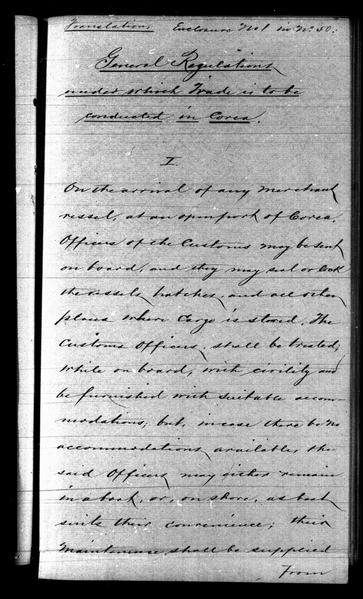 Translation. Enclosure No 1 in No 50.
General Regulations
under which Trade is to be
conducted in Corea.
I.
On the arrival of any merchant
vessel, at an open port of Corea,
Officers of the Customs may be sent
on board, and they may seal or lock
the vessels, hatches, and all other
places where Cargo is stored. The
Customs Officers, shall be treated,
while on board, with civility and
be furnished with suitable accom-
modations; but, in case there be no
accommodations available, the
said Officers may either remain
in a boat, or, on shore, as best
suits their convenience; their
Maintenance, shall be supplied
From